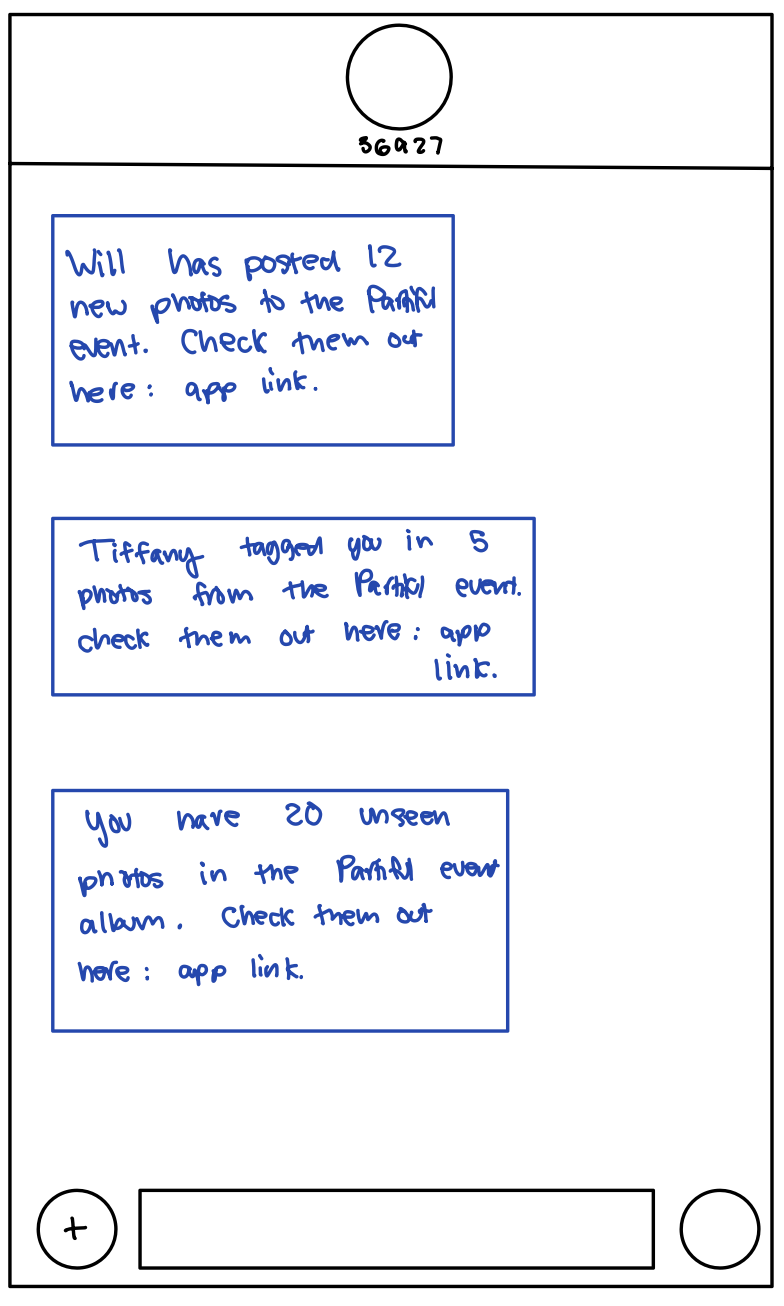 36927
Will has posted 12
new photos to the Partiful
event. Check them out
here: app link.
Tiffany tagged you in 5
photos from the Partiful event.
check them out here: app
link.
You have 20 unseen
photos in the Partiful event
album. Check them out
here: app link.
+